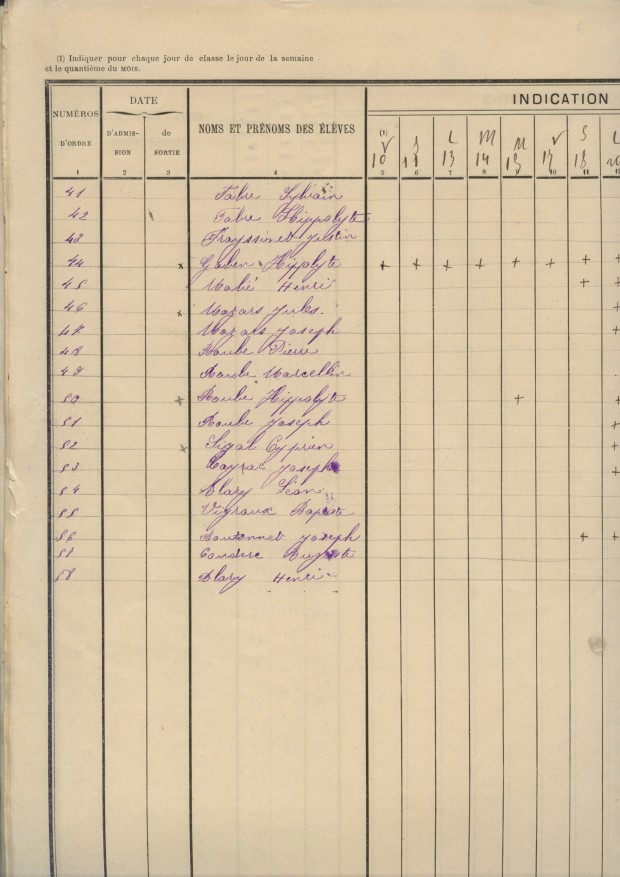 (1) Indiquer pour chaque jour de classe le jour de la semaine
et le quantième du MOIS.
NUMÉROS D'ORDRE
DATE
D'ADMISSION
de SORTIE
NOMS ET PRÉNOMS DES ÉLÈVES
INDICATION
(1)
V S L M M V S L
10 11 13 14 15 17 18 20
1 2 3 4 5 6 7 8 9 10 11 12
41 Fabre Sylvain
42 Fabre Hippolyte
43 Frayssinet Justin
44 x Galen Hippolyte + + + + + + + +
45 Malié Henri + +
46 x Mazars Jules. +
47 Mazars Joseph +
48 Roube Pierre
49 Roube Marcellin
50 + Roube Hippolyte + +
51 Roube Joseph +
52 x Sigal Cyprien +
53 Joseph +
54 Clary Léon
55 Vigroux Baptiste
56 Boutonnet Joseph + +
57 Couderc Auguste
58 Henri